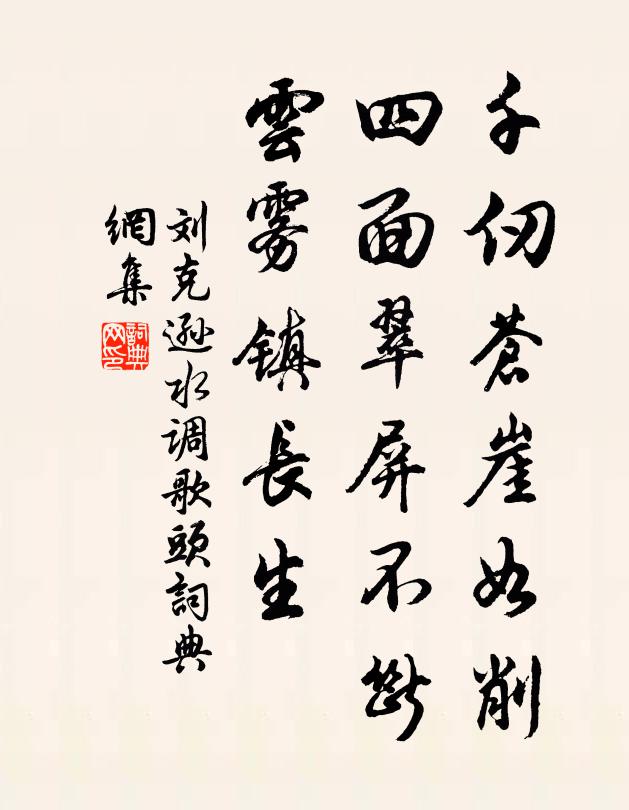 千仞蒼崖如削
四面翠屏不斷
雲雾镇長生
刘克逊水调歌頭詞典
網集
詞典
网印